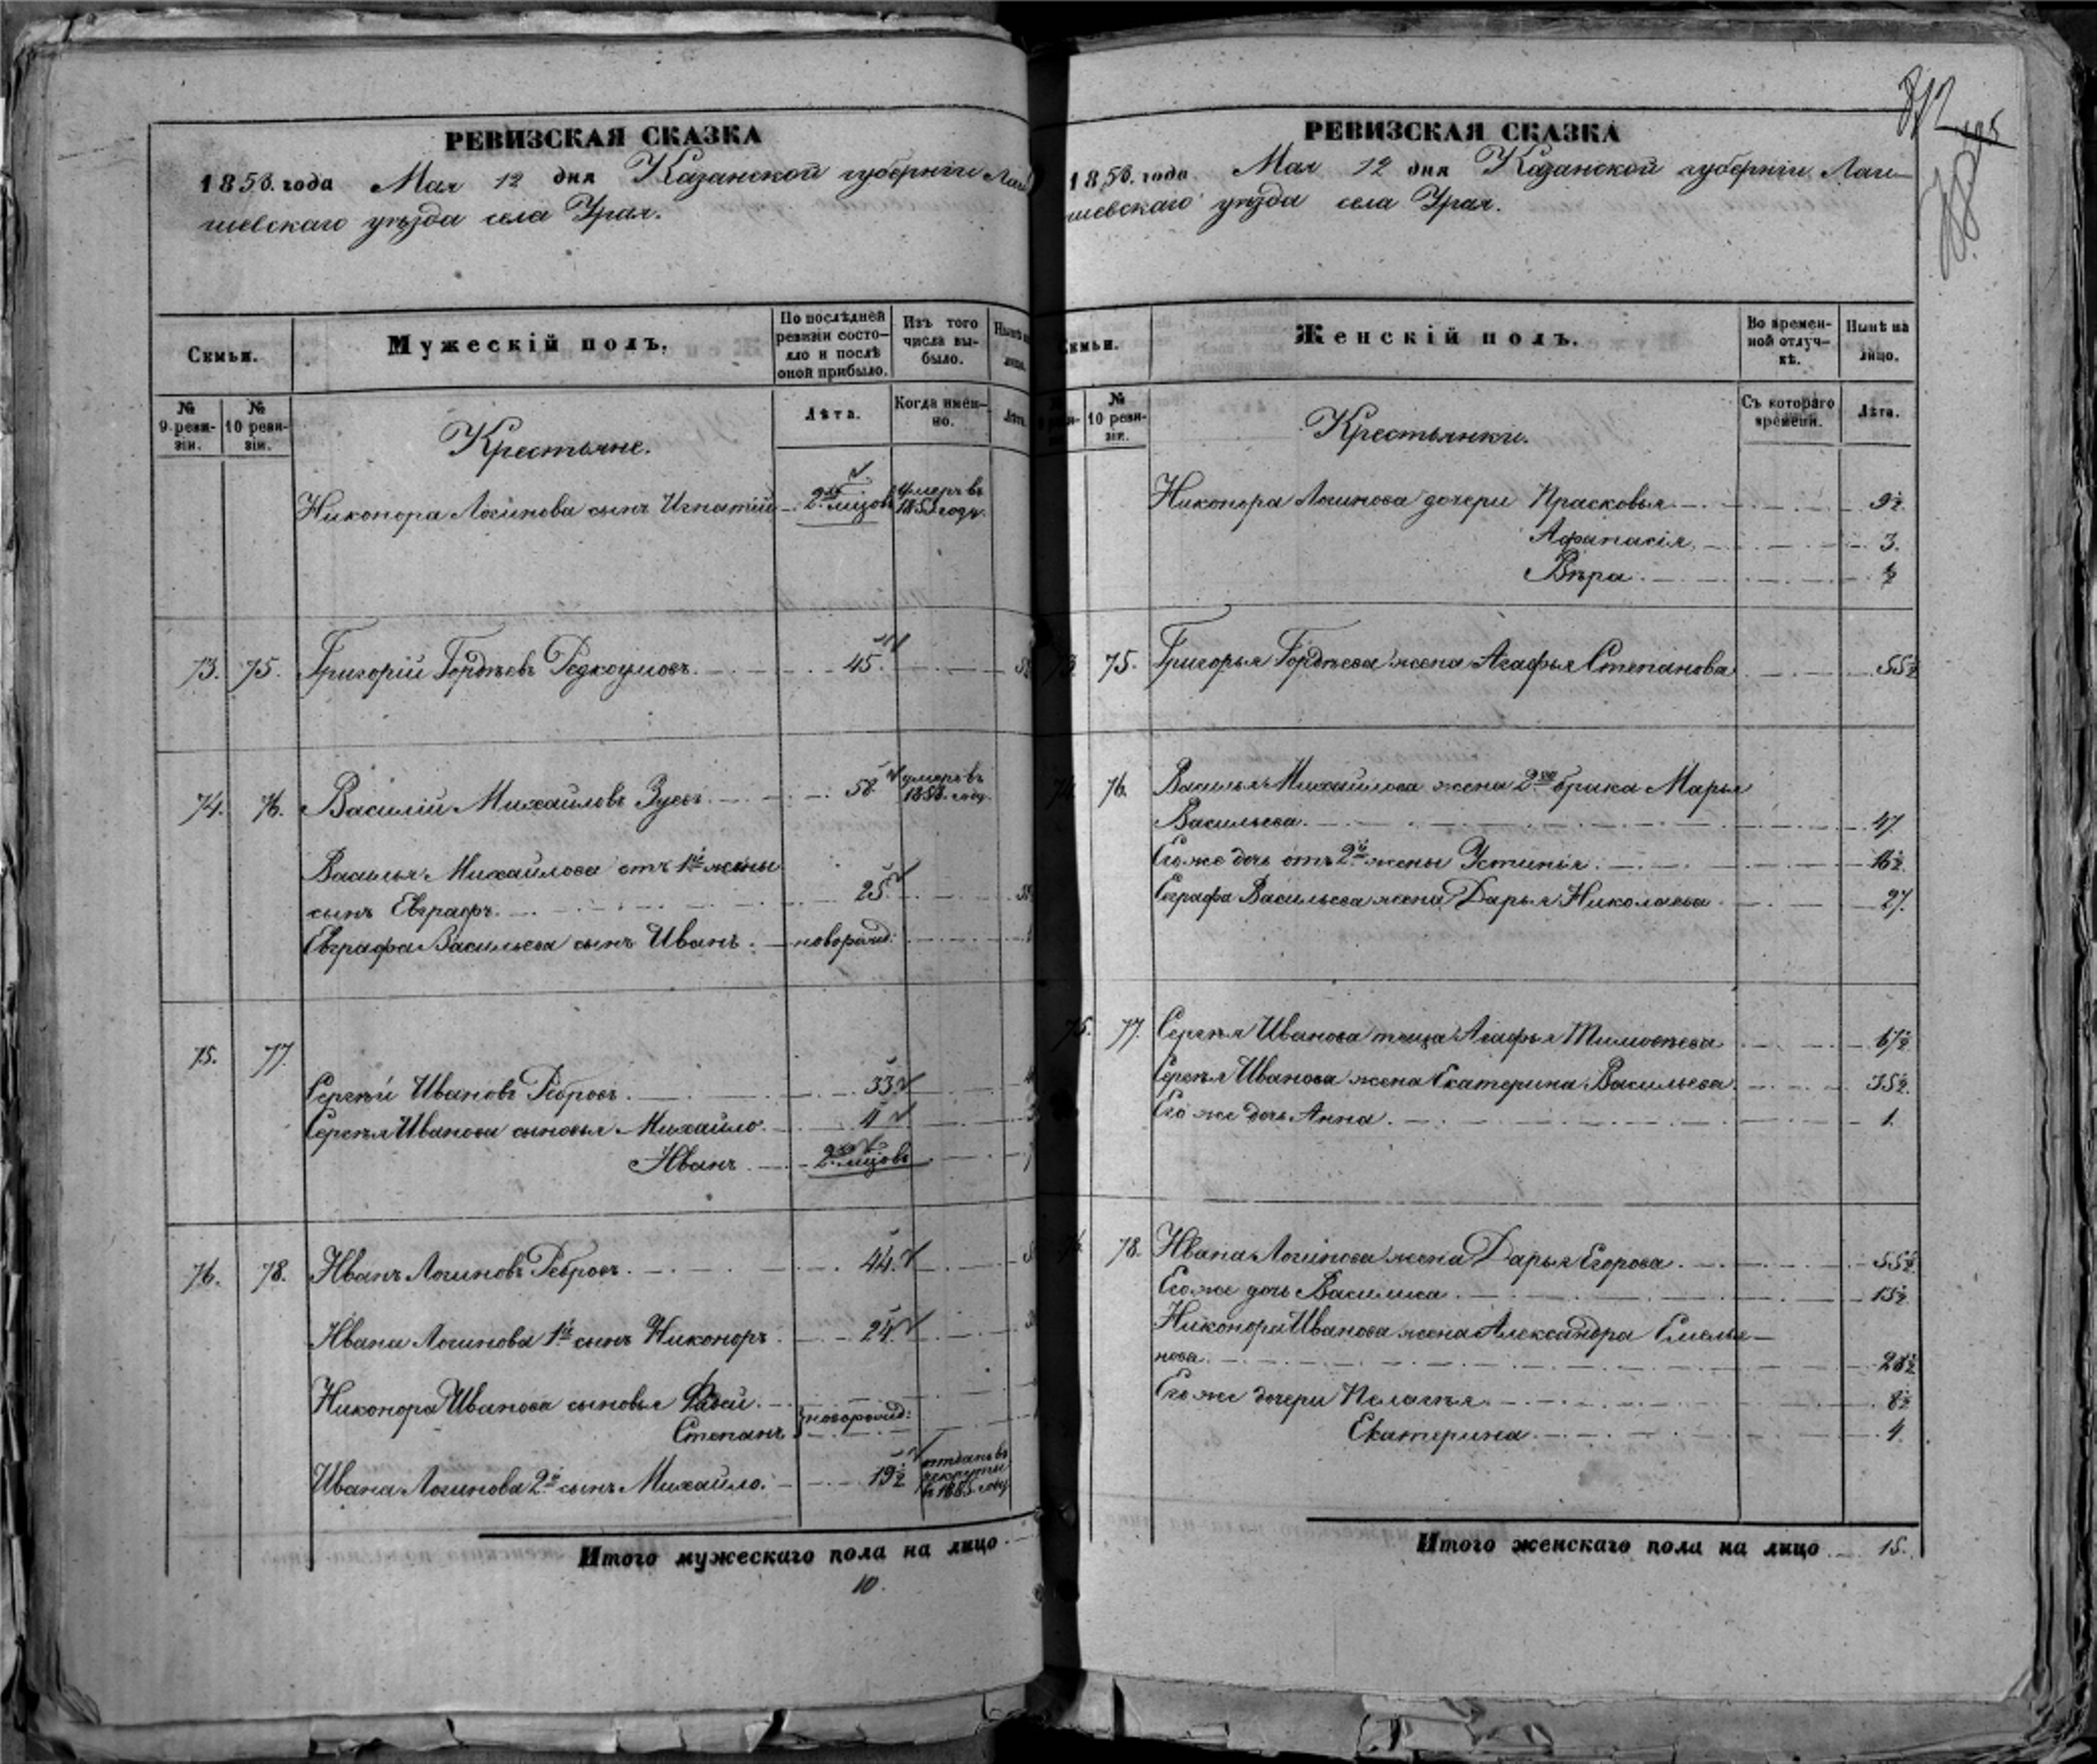 РЕВИЗСКАЯ СКАЗКА
1858. года Мая 12 дня Казанской губерніи Лаи
шевскаго уѣзда села Урая.
Семьи.
Мужескій полъ.
По послѣдней ревизіи состо-
яло и послѣ оной прибыло.
Изъ того числа вы-
было.
Нынѣ на лицо.
№ 9 реви-
зіи.
№ 10 реви-
зіи.
Лѣта.
Когда имен-
но.
Лѣта.
Крестьяне.
Никонора Логинова сынъ Игнатій 2 умеръ въ 1853 годѣ.
73. 75. Григорій Гордѣевъ Редкоумовъ. 45.
74. 76. Василій Михайловъ Зуевъ. 58. умеръ въ 1858. году.
Василья Михайлова отъ 1й жены
сынъ Евграфъ. 25.
Евграфа Васильева сынъ Иванъ. новорожд:
75. 77.
Сергѣй Ивановъ Ребровъ. 33.
Сергѣя Иванова сыновья Михайло. 11
Иванъ. 2
76. 78. Иванъ Логиновъ Ребровъ. 44.
Ивана Логинова 1й сынъ Никоноръ. 24.
Никонора Иванова сыновья Фадей.
Степанъ } новорожд:
Ивана Логинова 2й сынъ Михайло. 19½ отданъ въ рекруты въ 1855. году
Итого мужескаго пола на лицо
10.
812
РЕВИЗСКАЯ СКАЗКА
1858. года Мая 12 дня Казанской губерніи Лаи-
шевскаго уѣзда села Урая.
Семьи.
Женскій полъ.
Во времен-
ной отлуч-
кѣ.
Нынѣ на лицо.
№ 10 реви-
зіи.
Съ котораго времени.
Лѣта.
Крестьянки.
Никонора Логинова дочери Прасковья. 9½
Афанасія. 3.
Вѣра. ½
75. Григорья Гордѣева жена Агафья Степанова 55½
76. Василья Михайлова жена 2го брака Марья
Васильева. 47.
Его же дочь отъ 2й жены Устинья. 16½
Евграфа Васильева жена Дарья Николаева 27.
75. 77. Сергѣя Иванова теща Агафья Тимофеева 67½
Сергѣя Иванова жена Екатерина Васильева. 35½
Его же дочь Анна. 1.
78. Ивана Логинова жена Дарья Егорова. 55½
Его же дочь Василиса. 15½
Никонора Иванова жена Александра Емелья-
нова. 28½
Его же дочери Пелагея. 8½
Екатерина. 4.
Итого женскаго пола на лицо 15.